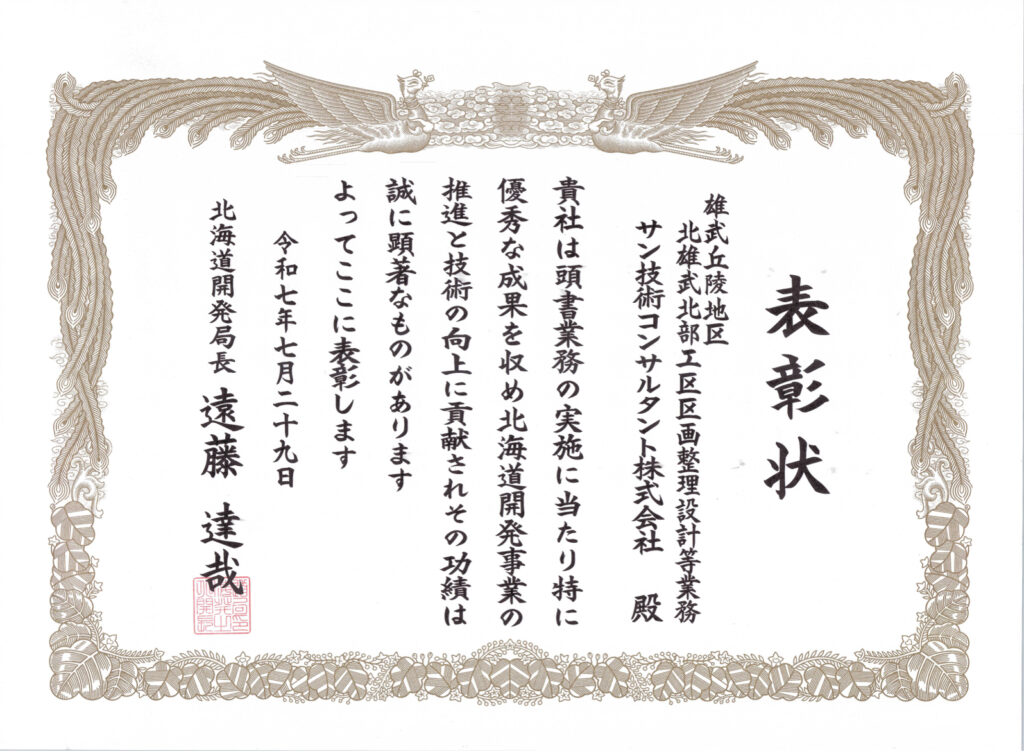 表彰状
雄武丘陵地区
北雄武北部工区区画整理設計等業務
サン技術コンサルタント株式会社 殿
貴社は頭書業務の実施に当たり特に
優秀な成果を収め北海道開発事業の
推進と技術の向上に貢献されその功績は
誠に顕著なものがあります
よってここに表彰します
令和七年七月二十九日
北海道開発局長 遠藤 達哉